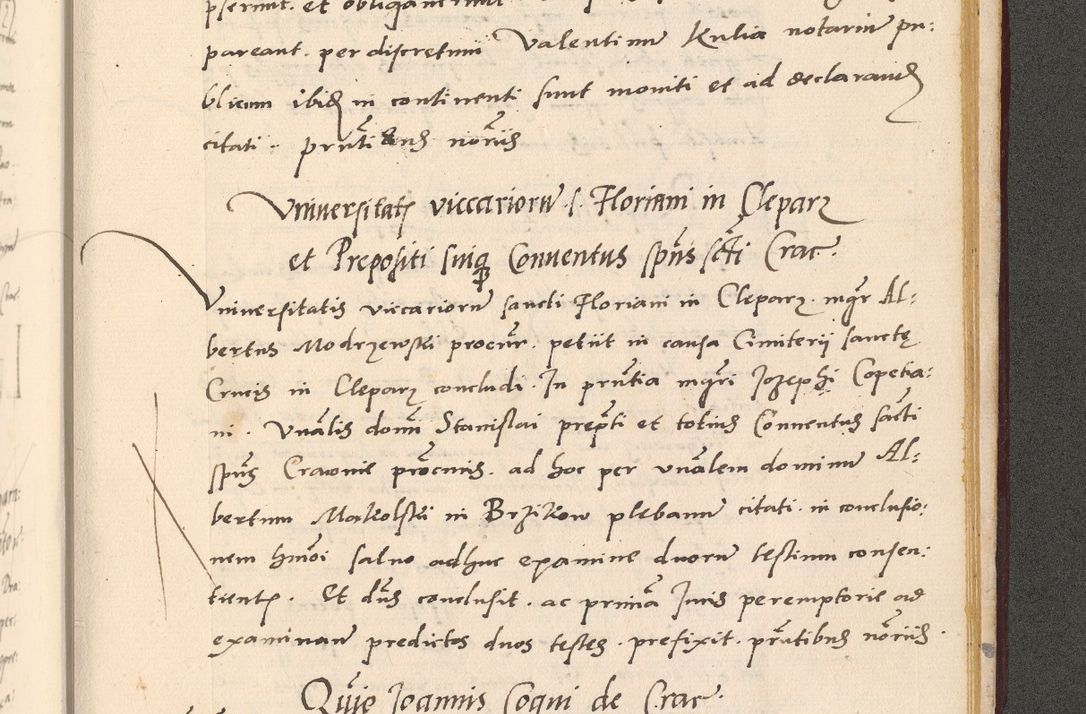 pserint. et obligaverint
pareant. per discretum Valentinu Kulia notariu pu:
blicum ibid in continenti sunt moniti et ad declarand
citati. pñtibus noriis
Vniversitatis viccarioru s. Floriani in Clepar
et Prepositi suiq Conuentus spūs scti Crac.
Vniuersitatis viccarioru sancti Floriani in Clepar. mgr Al:
bertus Modrzewski procur. petiit in causa Cimiterii sanctę
Crucis in Clepar concludi. In pntia mgri Jozephi Copetia:
ni. Vnalis domi Stanislai prepti et totius Conuentus sacti
spūs Cracouie procuris. ad hoc per vnalem dominu Al:
bertum Makolski in Brzikow plebanu citati. in conclusio:
nem hmoi saluo adhuc examine duoru testium consen:
tientis. Et dūs conclusit. ac prima Juris peremptorie ad
examinan predictos duos testes. prefixit. pntibus noriis.
Joannis Coqui de Crac.